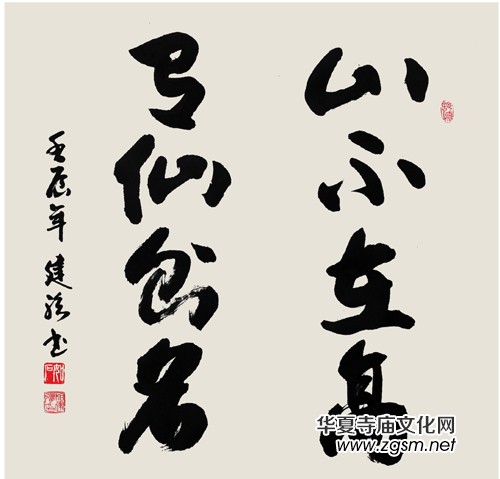 山不在高
有仙则名
壬辰年 建强书
华夏寺庙文化网
www.zgsm.net